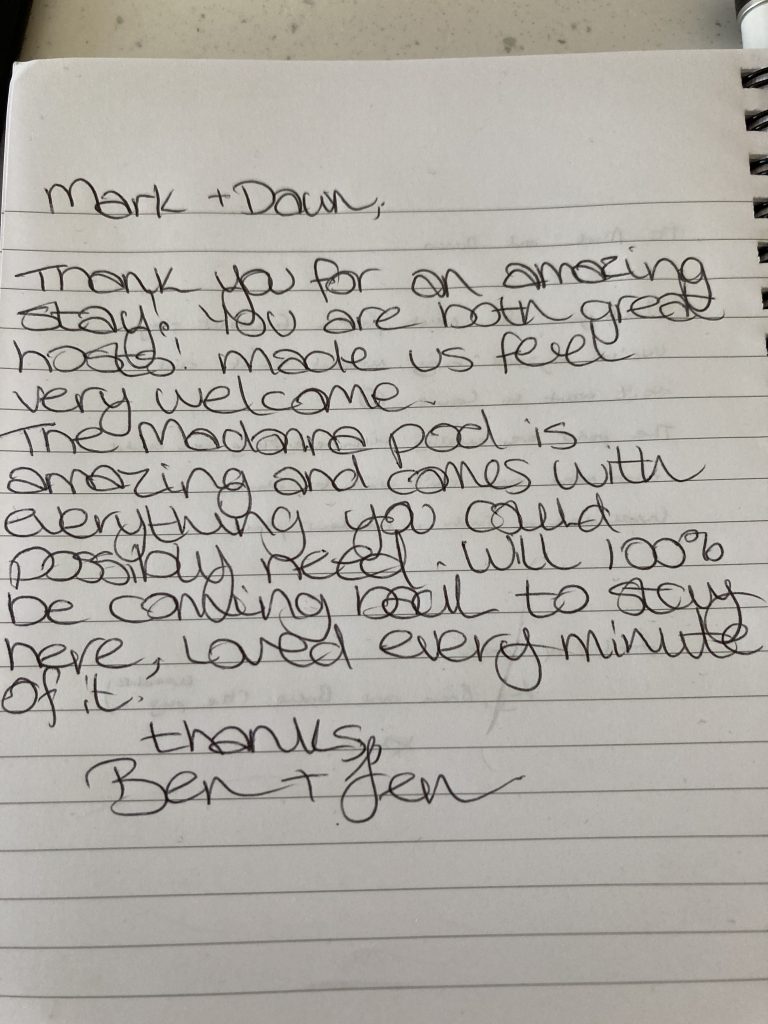 Mark + Dawn,
Thank you for an amazing
stay! You are both great
hosts! made us feel
very welcome.
The Madonna pod is
amazing and comes with
everything you could
possibly need. Will 100%
be coming back to stay
here, Loved every minute
of it.
thanks,
Ben + Jen